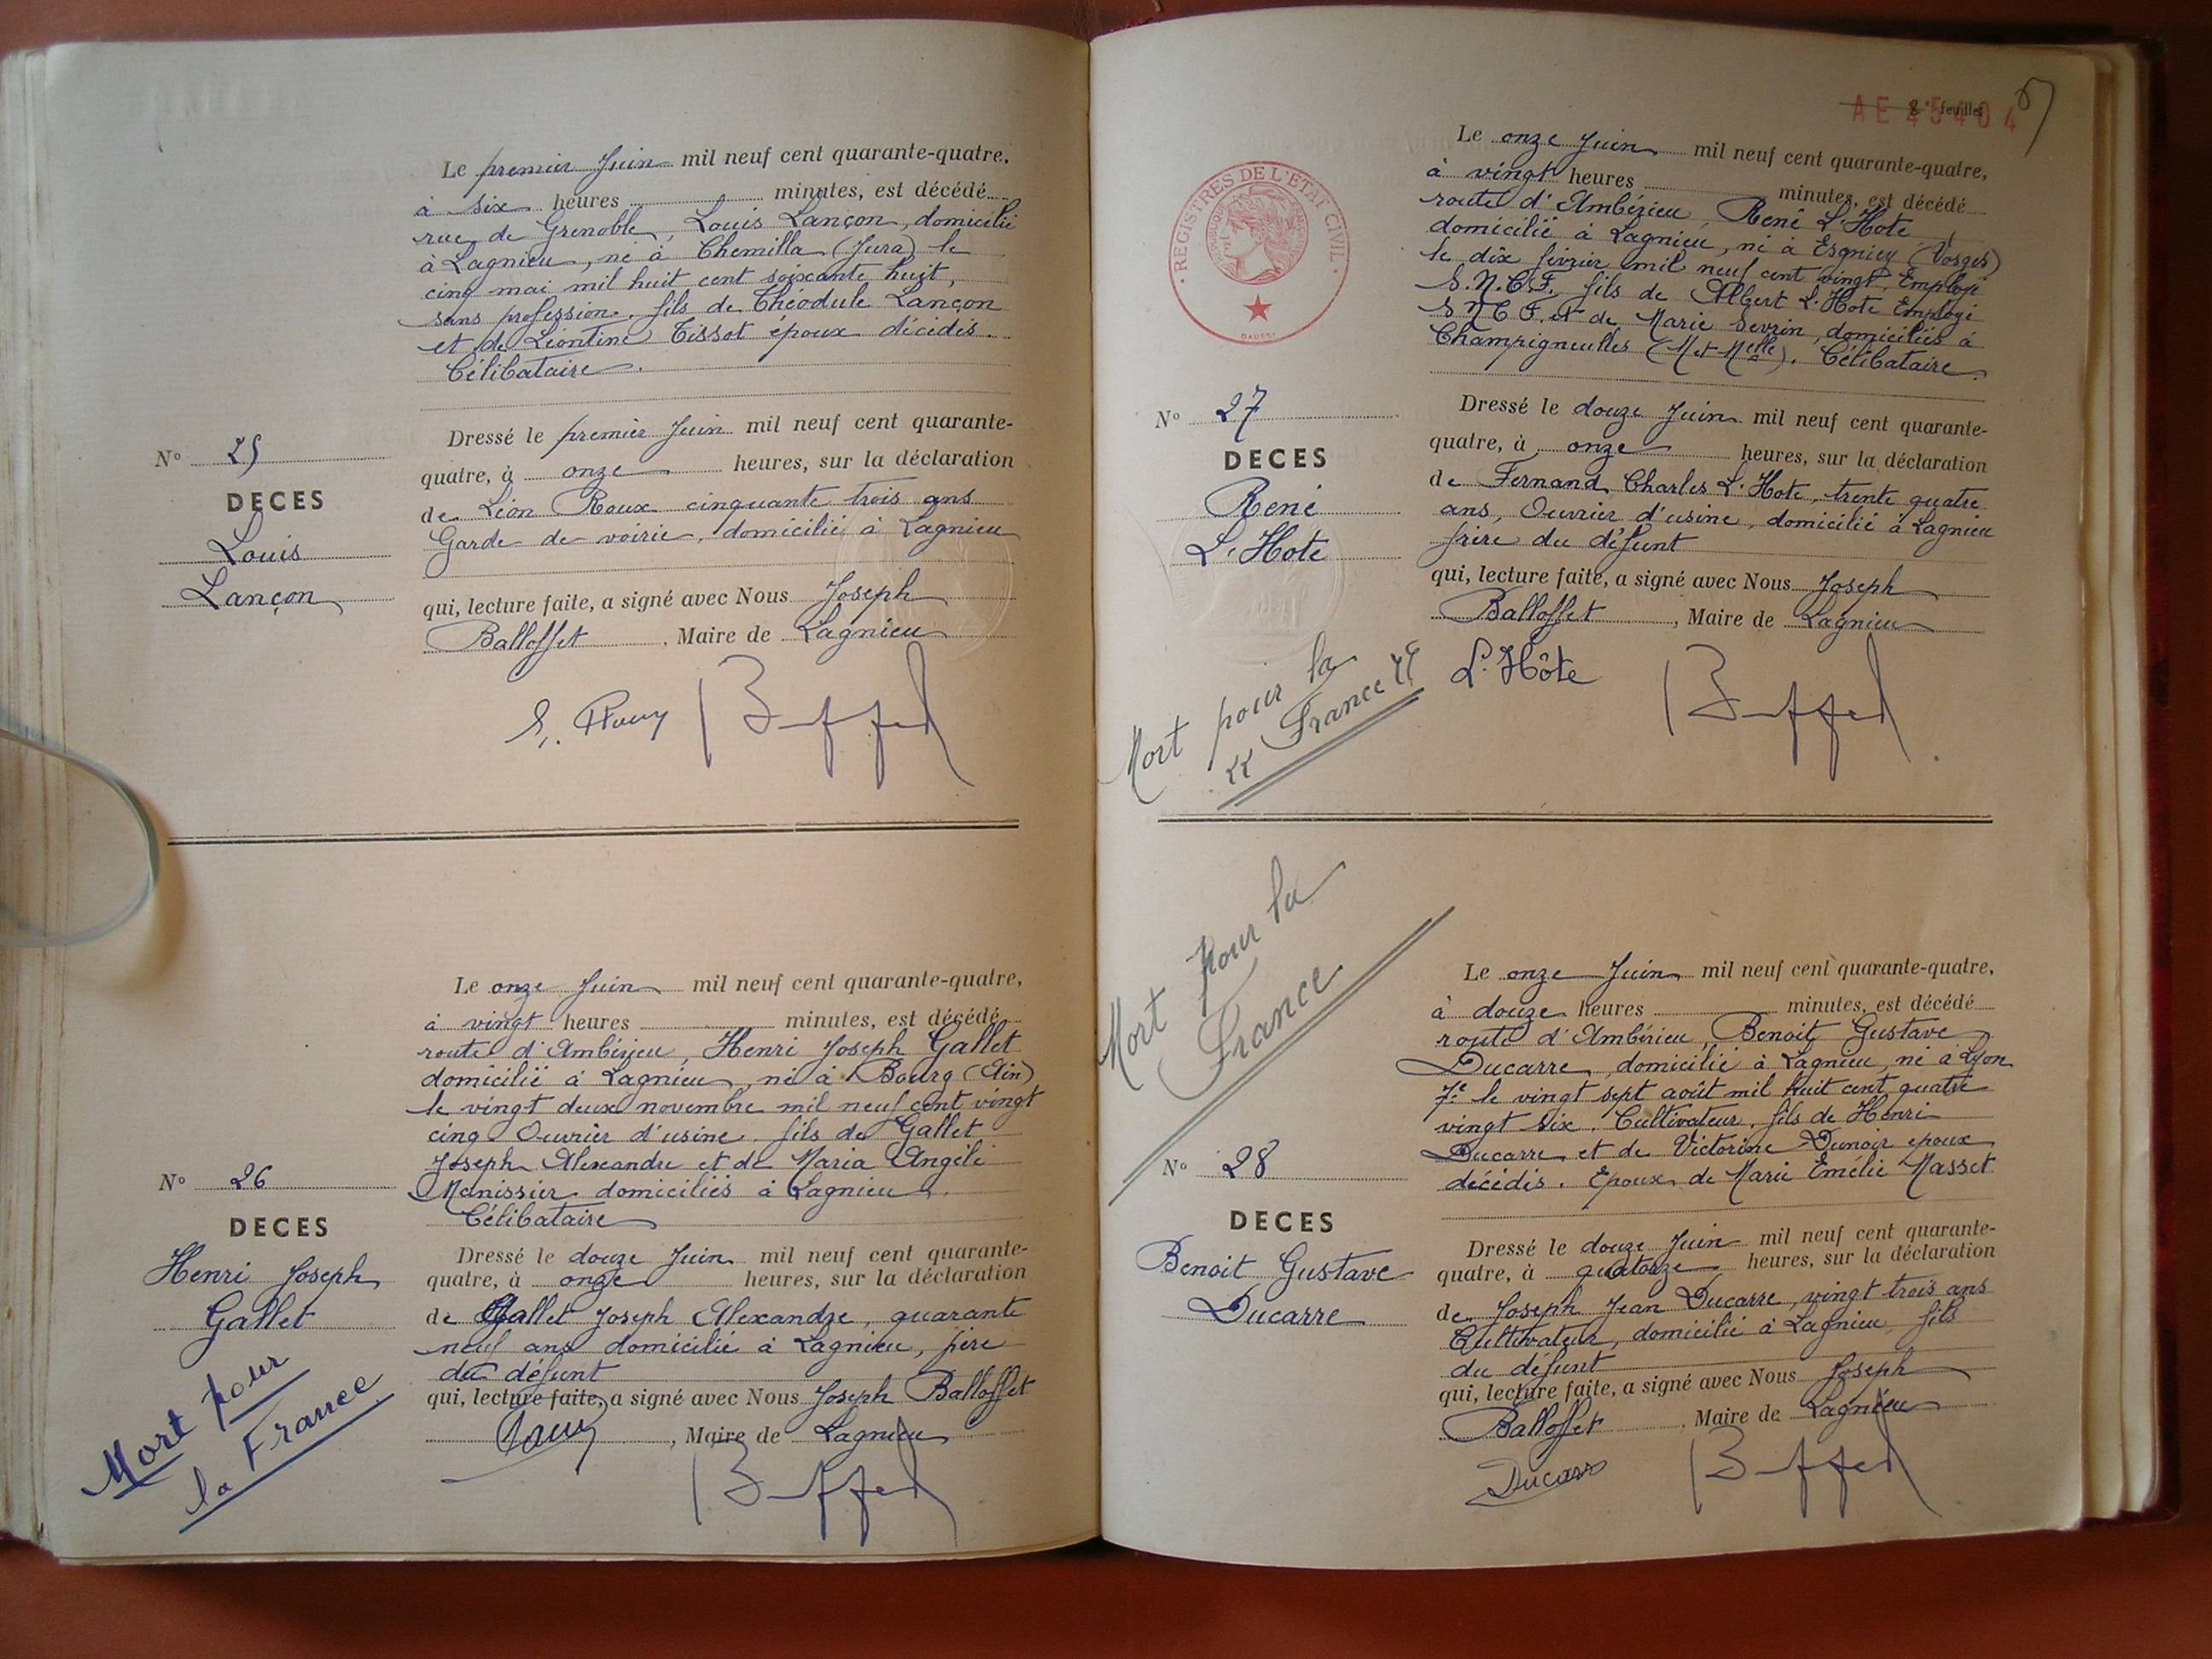 Le premier Juin mil neuf cent quarante-quatre,
à six heures minutes, est décédé
rue de Grenoble, Louis Lançon, domicilié
à Lagnieu, né à Chemilla (Jura) le
cinq mai mil huit cent soixante huit,
sans profession, fils de Théodule Lançon
et de Léontine Tissot époux décédés.
Célibataire.
Dressé le premier Juin mil neuf cent quarante-
quatre, à onze heures, sur la déclaration
de Léon Roux cinquante trois ans
Garde de voirie, domicilié à Lagnieu
qui, lecture faite, a signé avec Nous Joseph
Balloffet, Maire de Lagnieu
N° 25
DECES
Louis
Lançon
Le onze Juin mil neuf cent quarante-quatre,
à vingt heures minutes, est décédé
route d'Ambérieu, Henri Joseph Gallet
domicilié à Lagnieu, né à Bourg (Ain)
le vingt deux novembre mil neuf cent vingt
cinq Ouvrier d'usine. fils de Gallet
Joseph Alexandre et de Maria Angéli
Manissier domiciliés à Lagnieu.
Célibataire
Dressé le douze Juin mil neuf cent quarante-
quatre, à onze heures, sur la déclaration
de Gallet Joseph Alexandre, quarante
neuf ans domicilié à Lagnieu, père
du défunt
qui, lecture faite, a signé avec Nous Joseph Balloffet
, Maire de Lagnieu
N° 26
DECES
Henri Joseph
Gallet
Mort pour
la France
8e feuillet
AE 25404
REGISTRES DE L'ETAT CIVIL
Le onze Juin mil neuf cent quarante-quatre,
à vingt heures minutes, est décédé
route d'Ambérieu, René L'Hote
domicilié à Lagnieu, né à Esgniey (Vosges)
le dix février mil neuf cent vingt, Employé
S.N.C.F. fils de Albert L'Hote Employé
S N C F. et de Marie Sevrin, domiciliés à
Champigneulles (M et Melle). Célibataire.
Dressé le douze Juin mil neuf cent quarante-
quatre, à onze heures, sur la déclaration
de Fernand Charles L'Hote, trente quatre
ans, Ouvrier d'usine, domicilié à Lagnieu
frère du défunt
qui, lecture faite, a signé avec Nous Joseph
Balloffet, Maire de Lagnieu
L'Hôte
N° 27
DECES
René
L'Hote
Mort pour la
France
Mort pour la
France
Le onze Juin mil neuf cent quarante-quatre,
à douze heures minutes, est décédé
route d'Ambérieu, Benoit Gustave
Ducarre, domicilié à Lagnieu, né à Lyon
7e le vingt sept août mil huit cent quatre
vingt six. Cultivateur, fils de Henri
Ducarre et de Victorine Dunoir époux
décédés. Epoux de Marie Emélie Masset
Dressé le douze Juin mil neuf cent quarante-
quatre, à quatorze heures, sur la déclaration
de Joseph Jean Ducarre, vingt trois ans
Cultivateur, domicilié à Lagnieu, fils
du défunt
qui, lecture faite, a signé avec Nous Joseph
Balloffet, Maire de Lagnieu
N° 28
DECES
Benoit Gustave
Ducarre